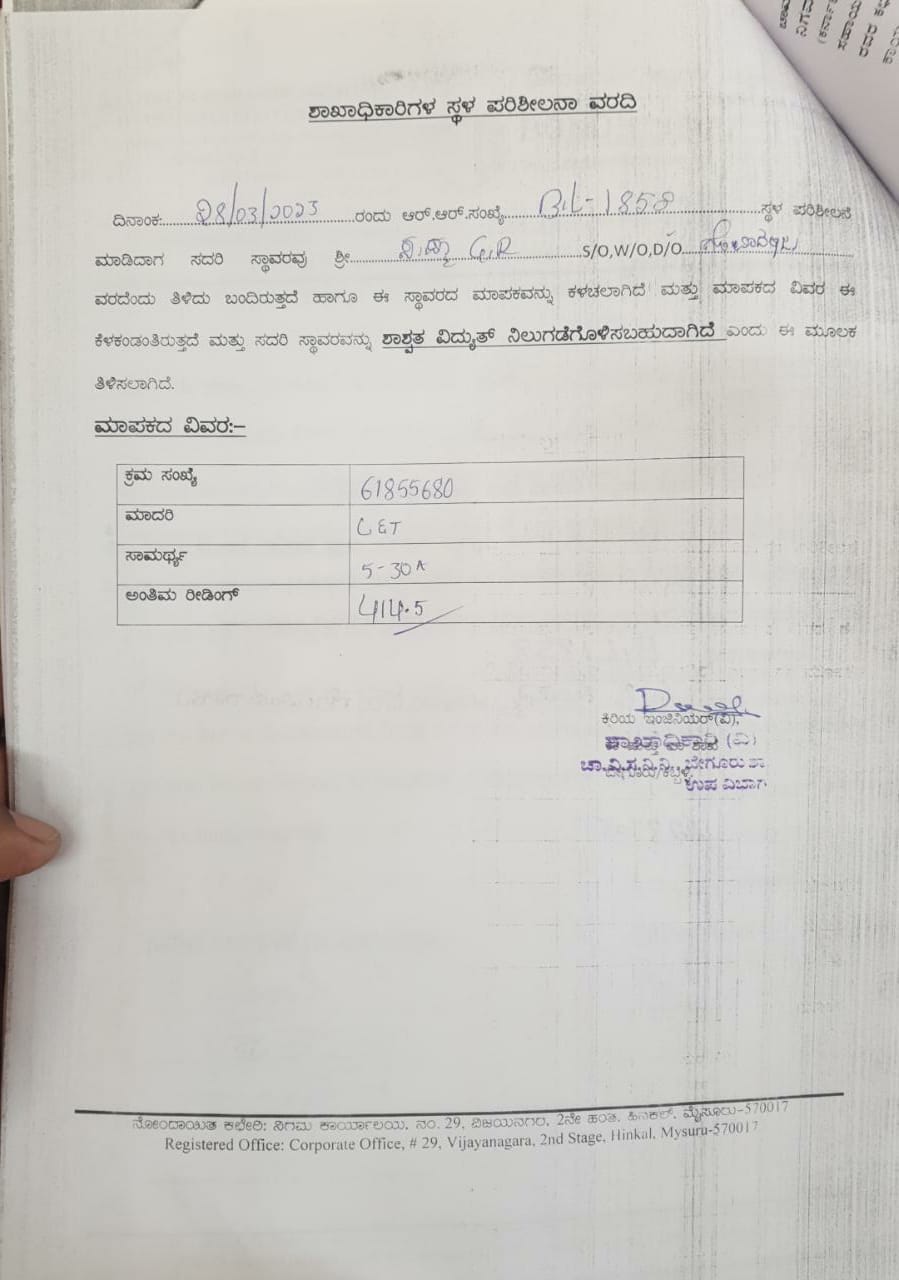 ಶಾಖಾಧಿಕಾರಿಗಳ ಸ್ಥಳ ಪರಿಶೀಲನಾ ವರದಿ
ದಿನಾಂಕ:28/03/2023 ರಂದು ಆರ್.ಆರ್.ಸಂಖ್ಯೆ BIL-1858 ಸ್ಥಳ ಪರಿಶೀಲನೆ
ಮಾಡಿದಾಗ ಸದರಿ ಸ್ಥಾವರವು ಶ್ರೀ G.R S/O,W/O,D/O
ವರದೆಂದು ತಿಳಿದು ಬಂದಿರುತ್ತದೆ ಹಾಗೂ ಈ ಸ್ಥಾವರದ ಮಾಪಕವನ್ನು ಕಳಚಲಾಗಿದೆ ಮತ್ತು ಮಾಪಕದ ವಿವರ ಈ
ಕೆಳಕಂಡಂತಿರುತ್ತದೆ ಮತ್ತು ಸದರಿ ಸ್ಥಾವರವನ್ನು ಶಾಶ್ವತ ವಿದ್ಯುತ್ ನಿಲುಗಡೆಗೊಳಿಸಬಹುದಾಗಿದೆ ಎಂದು ಈ ಮೂಲಕ
ತಿಳಿಸಲಾಗಿದೆ.
ಮಾಪಕದ ವಿವರ:-
ಕ್ರಮ ಸಂಖ್ಯೆ 61855680
ಮಾದರಿ L&T
ಸಾಮರ್ಥ್ಯ 5-30A
ಅಂತಿಮ ರೀಡಿಂಗ್ 414.5
ಕಿರಿಯ ಇಂಜಿನಿಯರ್(ವಿ),
ಶಾಖಾಧಿಕಾರಿ (ವಿ)
ಚಾ.ವಿ.ಸ.ನಿ.ನಿ., ಬೇಗೂರು ಶಾ
ಉಪ ವಿಭಾಗ
ನೋಂದಾಯಿತ ಕಛೇರಿ: ನಿಗಮ ಕಾರ್ಯಾಲಯ, ನಂ. 29, ವಿಜಯನಗರ, 2ನೇ ಹಂತ, ಹಿನಕಲ್, ಮೈಸೂರು-570017
Registered Office: Corporate Office, # 29, Vijayanagara, 2nd Stage, Hinkal, Mysuru-570017